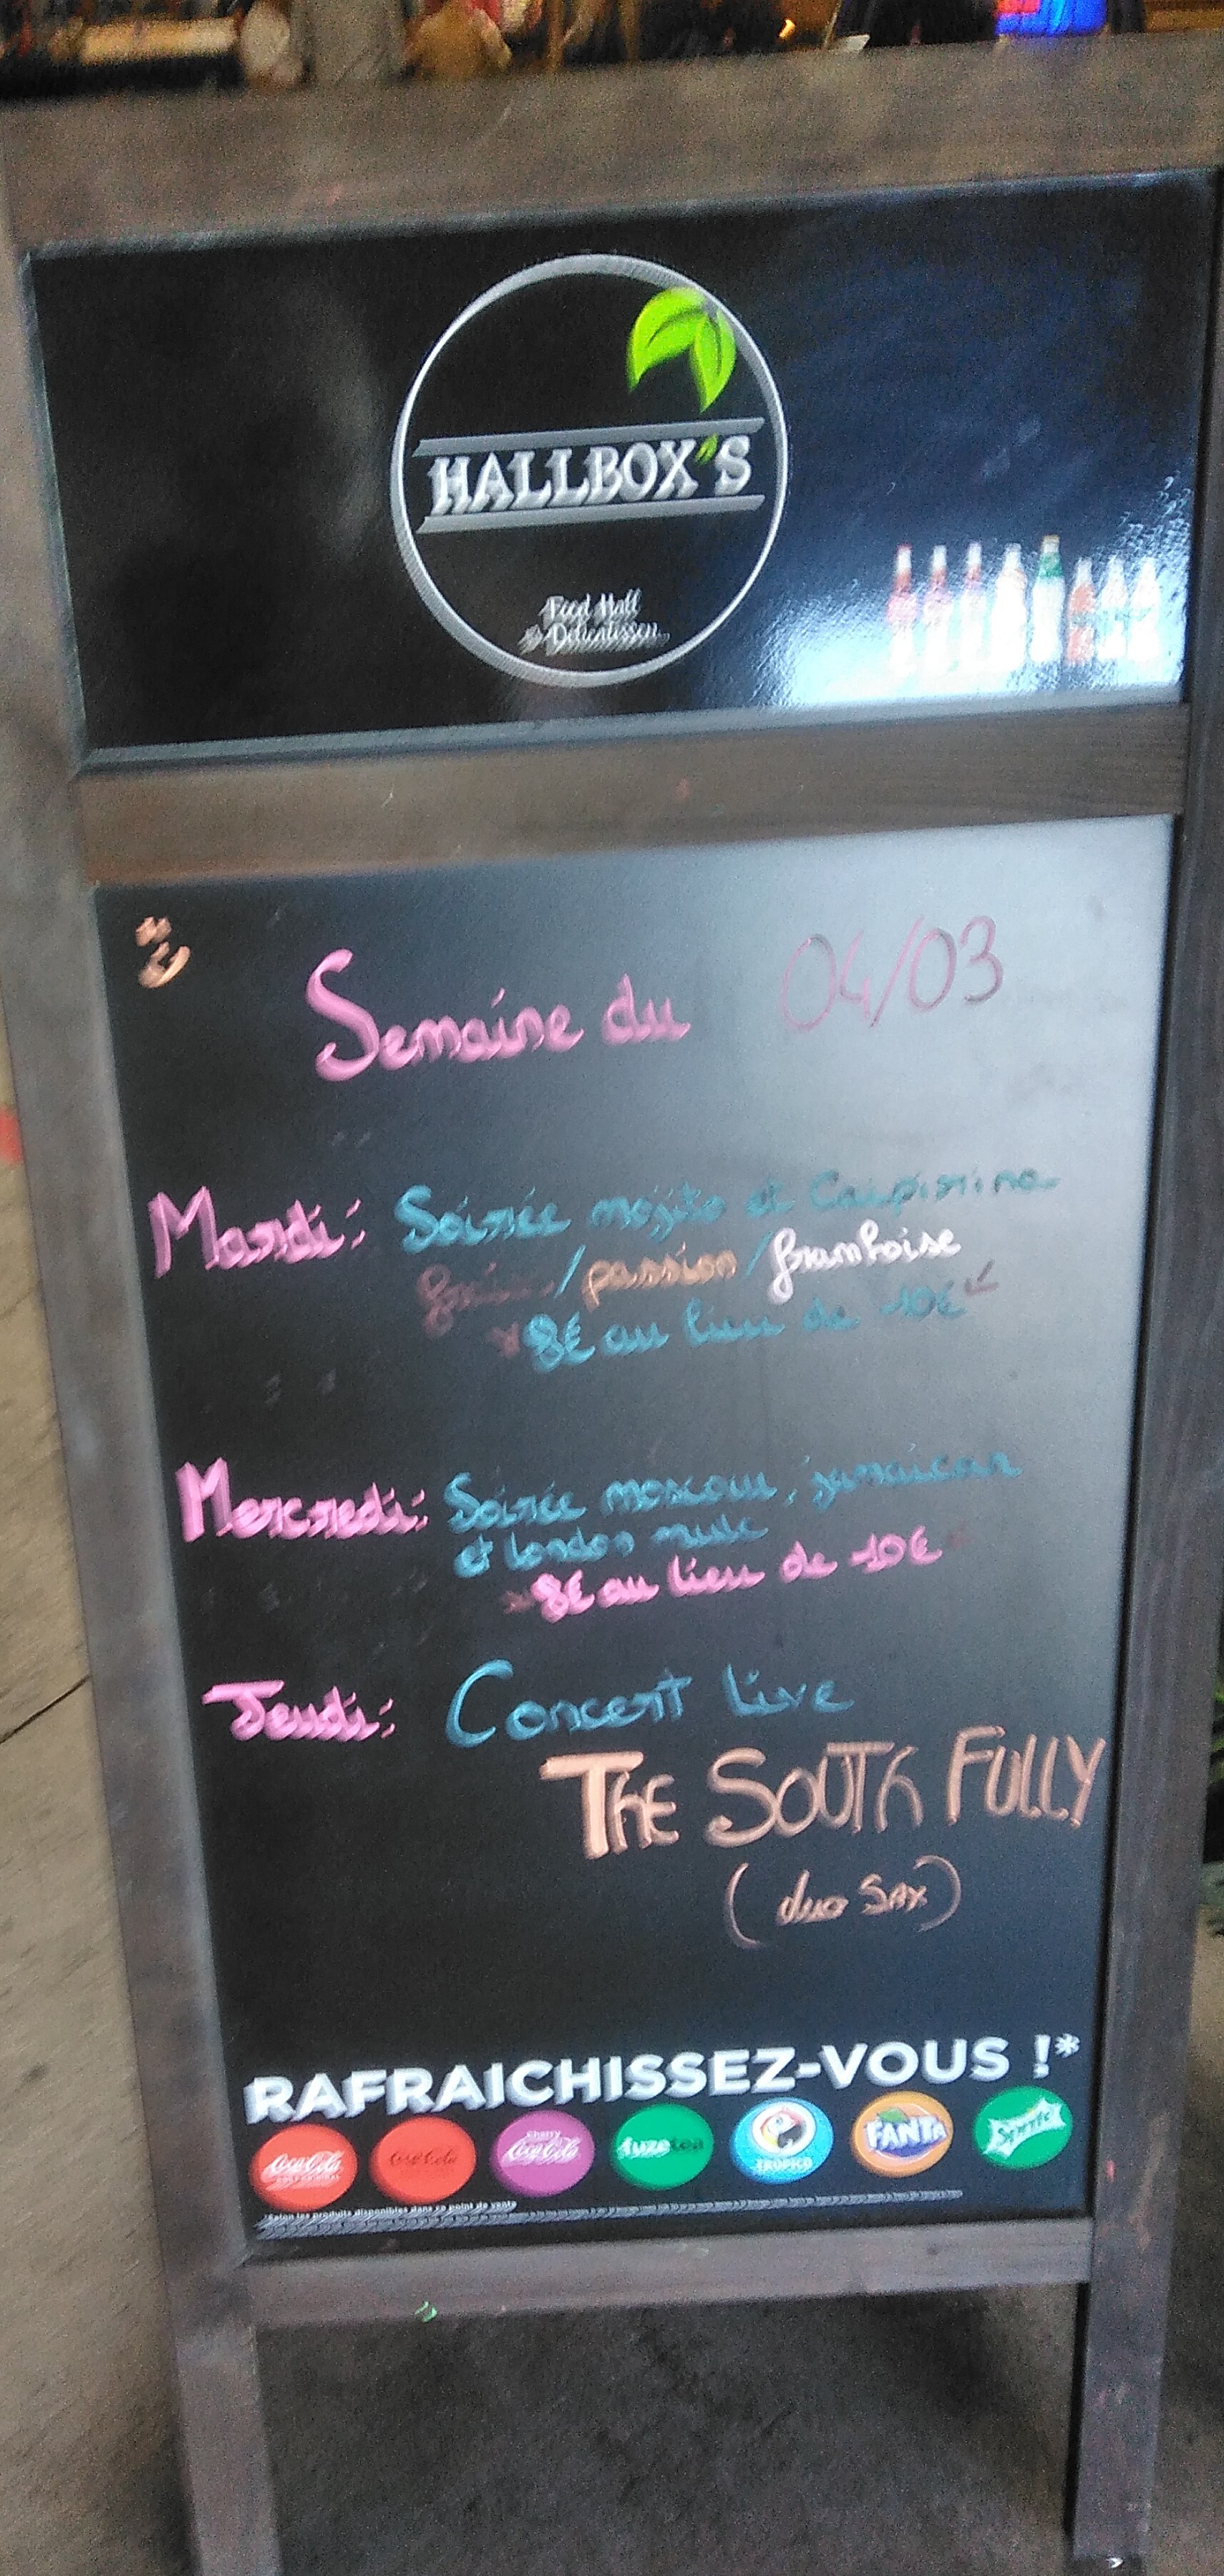 HALLBOX'S
Food Hall
Delicatessen
Semaine du 04/03
Mardi: Soirée mojito et Caipirina
/ passion / framboise
8€ au lieu de 10€
Mercredi: Soirée moscow, jamaican
et london mule
8€ au lieu de 10€
Jeudi: Concert live
THE SOUTH FULLY
(duo SAX)
RAFRAICHISSEZ-VOUS !*
Coca-Cola Coca-Cola cherry Coca-Cola fuzetea TROPICO FANTA Sprite
*Selon les produits disponibles dans ce point de vente